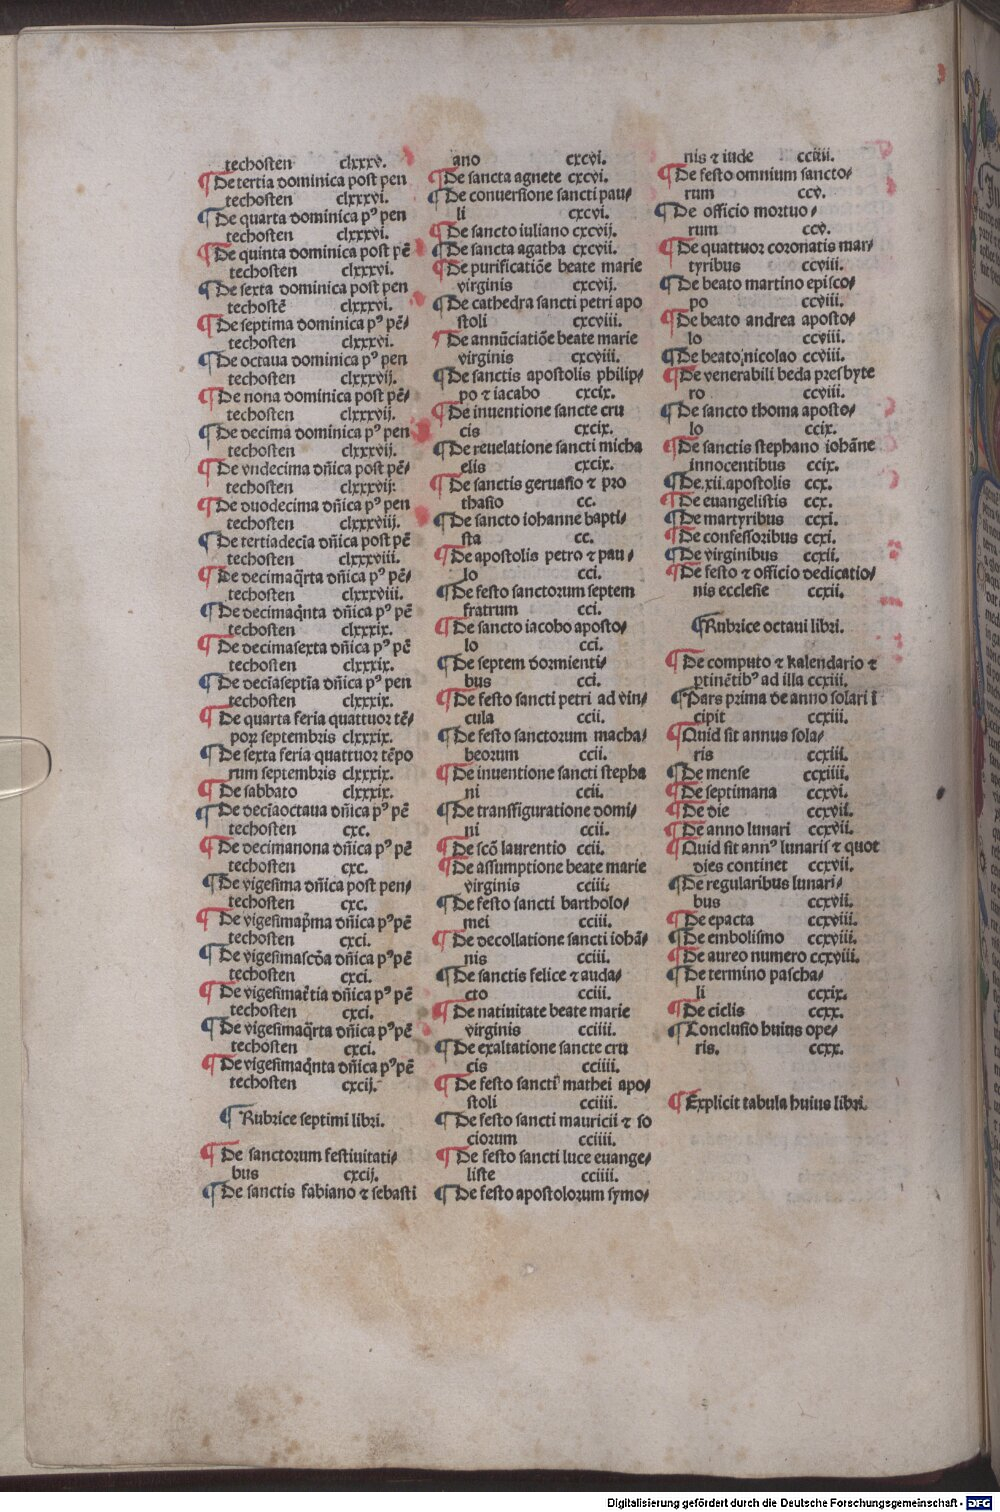 techosten clxxxv.
¶De tertia dominica post pen
techosten clxxxvi.
¶De quarta dominica pꝰ pen
techosten clxxxvi.
¶De quinta dominica post pē
techosten clxxxvi.
¶De sexta dominica post pen
techostē clxxxvi.
¶De septima dominica pꝰ pē⸗
techosten clxxxvi.
¶De octaua dominica pꝰ pen
techosten clxxxvij.
¶De nona dominica post pē⸗
techosten clxxxvij.
¶De decima dominica pꝰ pen
techosten clxxxvij.
¶De vndecima dñica post pē⸗
techosten clxxxvij.
¶De duodecima dñica pꝰ pen
techosten clxxxviij.
¶De tertiadecīa dñica post pē
techosten clxxxviii.
¶De decimaq̄rta dñica pꝰ pē⸗
techosten clxxxviii.
¶De decimaq̄nta dñica pꝰ pē
techosten clxxxix.
¶De decimasexta dñica pꝰ pē
techosten clxxxix.
¶De decīaseptīa dñica pꝰ pen
techosten clxxxix.
¶De quarta feria quattuor tē⸗
poꝝ septembris clxxxix.
¶De sexta feria quattuor tēpo
rum septembris clxxxix.
¶De sabbato clxxxix.
¶De decīaoctaua dñica pꝰ pē
techosten cxc.
¶De decimanona dñica pꝰ pē
techosten cxc.
¶De vigesima dñica post pen⸗
techosten cxc.
¶De vigesimap̄ma dñica pꝰpē
techosten cxci.
¶De vigesimascd̄a dñica pꝰpē
techosten cxci.
¶De vigesimat̄tia dñica pꝰ pē
techosten cxci.
¶De vigesimaq̄rta dñica pꝰpē
techosten cxci.
¶De vigesimaq̄nta dñica pꝰpē
techosten cxcij.
¶Rubrice septimi libri.
¶De sanctorum festiuitati⸗
bus cxcij.
¶De sanctis fabiano ⁊ sebasti
ano cxcvi.
¶De sancta agnete cxcvi.
¶De conuersione sancti pau⸗
li cxcvi.
¶De sancto iuliano cxcvij.
¶De sancta agatha cxcvii.
¶De purificatiōe beate marie
virginis cxcvij.
¶De cathedra sancti petri apo
stoli cxcviii.
¶De annūciatiōe beate marie
virginis cxcviii.
¶De sanctis apostolis philip⸗
po ⁊ iacabo cxcix.
¶De inuentione sancte cru
cis cxcix.
¶De reuelatione sancti micha
elis cxcix.
¶De sanctis geruasio ⁊ pro
thasio cc.
¶De sancto iohanne bapti⸗
sta cc.
¶De apostolis petro ⁊ pau⸗
lo cci.
¶De festo sanctorum septem
fratrum cci.
¶De sancto iacobo aposto⸗
lo cci.
¶De septem dormienti⸗
bus cci.
¶De festo sancti petri ad vin⸗
cula ccii.
¶De festo sanctorum macha⸗
beorum ccii.
¶De inuentione sancti stepha
ni ccii.
¶De transfiguratione domi⸗
ni ccii.
¶De scō laurentio ccii.
¶De assumptione beate marie
virginis cciii.
¶De festo sancti bartholo⸗
mei cciii.
¶De decollatione sancti iohā⸗
nis cciii.
¶De sanctis felice ⁊ auda⸗
cto cciii.
¶De natiuitate beate marie
virginis cciiii.
¶De exaltatione sancte cru
cis cciiii.
¶De festo sancti mathei apo⸗
stoli cciiii.
¶De festo sancti mauricii ⁊ so
ciorum cciiii.
¶De festo sancti luce euange⸗
liste cciiii.
¶De festo apostolorum symo⸗
nis ⁊ iude cciiii.
¶De festo omnium sancto⸗
rum ccv.
¶De officio mortuo⸗
rum ccv.
¶De quattuor coronatis mar⸗
tyribus ccviii.
¶De beato martino episco⸗
po ccviii.
¶De beato andrea aposto⸗
lo ccviii.
¶De beato nicolao ccviii.
¶De venerabili beda presbyte
ro ccviii.
¶De sancto thoma aposto⸗
lo ccix.
¶De sanctis stephano iohāne
innocentibus ccix.
¶De.xii.apostolis ccx.
¶De euangelistis ccx.
¶De martyribus ccxi.
¶De confessoribus ccxi.
¶De virginibus ccxii.
¶De festo ⁊ officio dedicatio⸗
nis ecclesie ccxii.
¶Rubrice octaui libri.
¶De computo ⁊ kalendario ⁊
ꝑtinētibꝰ ad illa ccxiii.
¶Pars prima de anno solari ī
cipit ccxiii.
¶Quid sit annus sola⸗
ris ccxiii.
¶De mense ccxiiii.
¶De septimana ccxvi.
¶De die ccxvii.
¶De anno lunari ccxvii.
¶Quid sit annꝰ lunaris ⁊ quot
dies continet ccxvii.
¶De regularibus lunari⸗
bus ccxvii.
¶De epacta ccxviii.
¶De embolismo ccxviii.
¶De aureo numero ccxviii.
¶De termino pascha⸗
li ccxix.
¶De ciclis ccxx.
¶Conclusio huius ope⸗
ris. ccxx.
¶Explicit tabula huius libri.
Digitalisierung gefördert durch die Deutsche Forschungsgemeinschaft - DFG